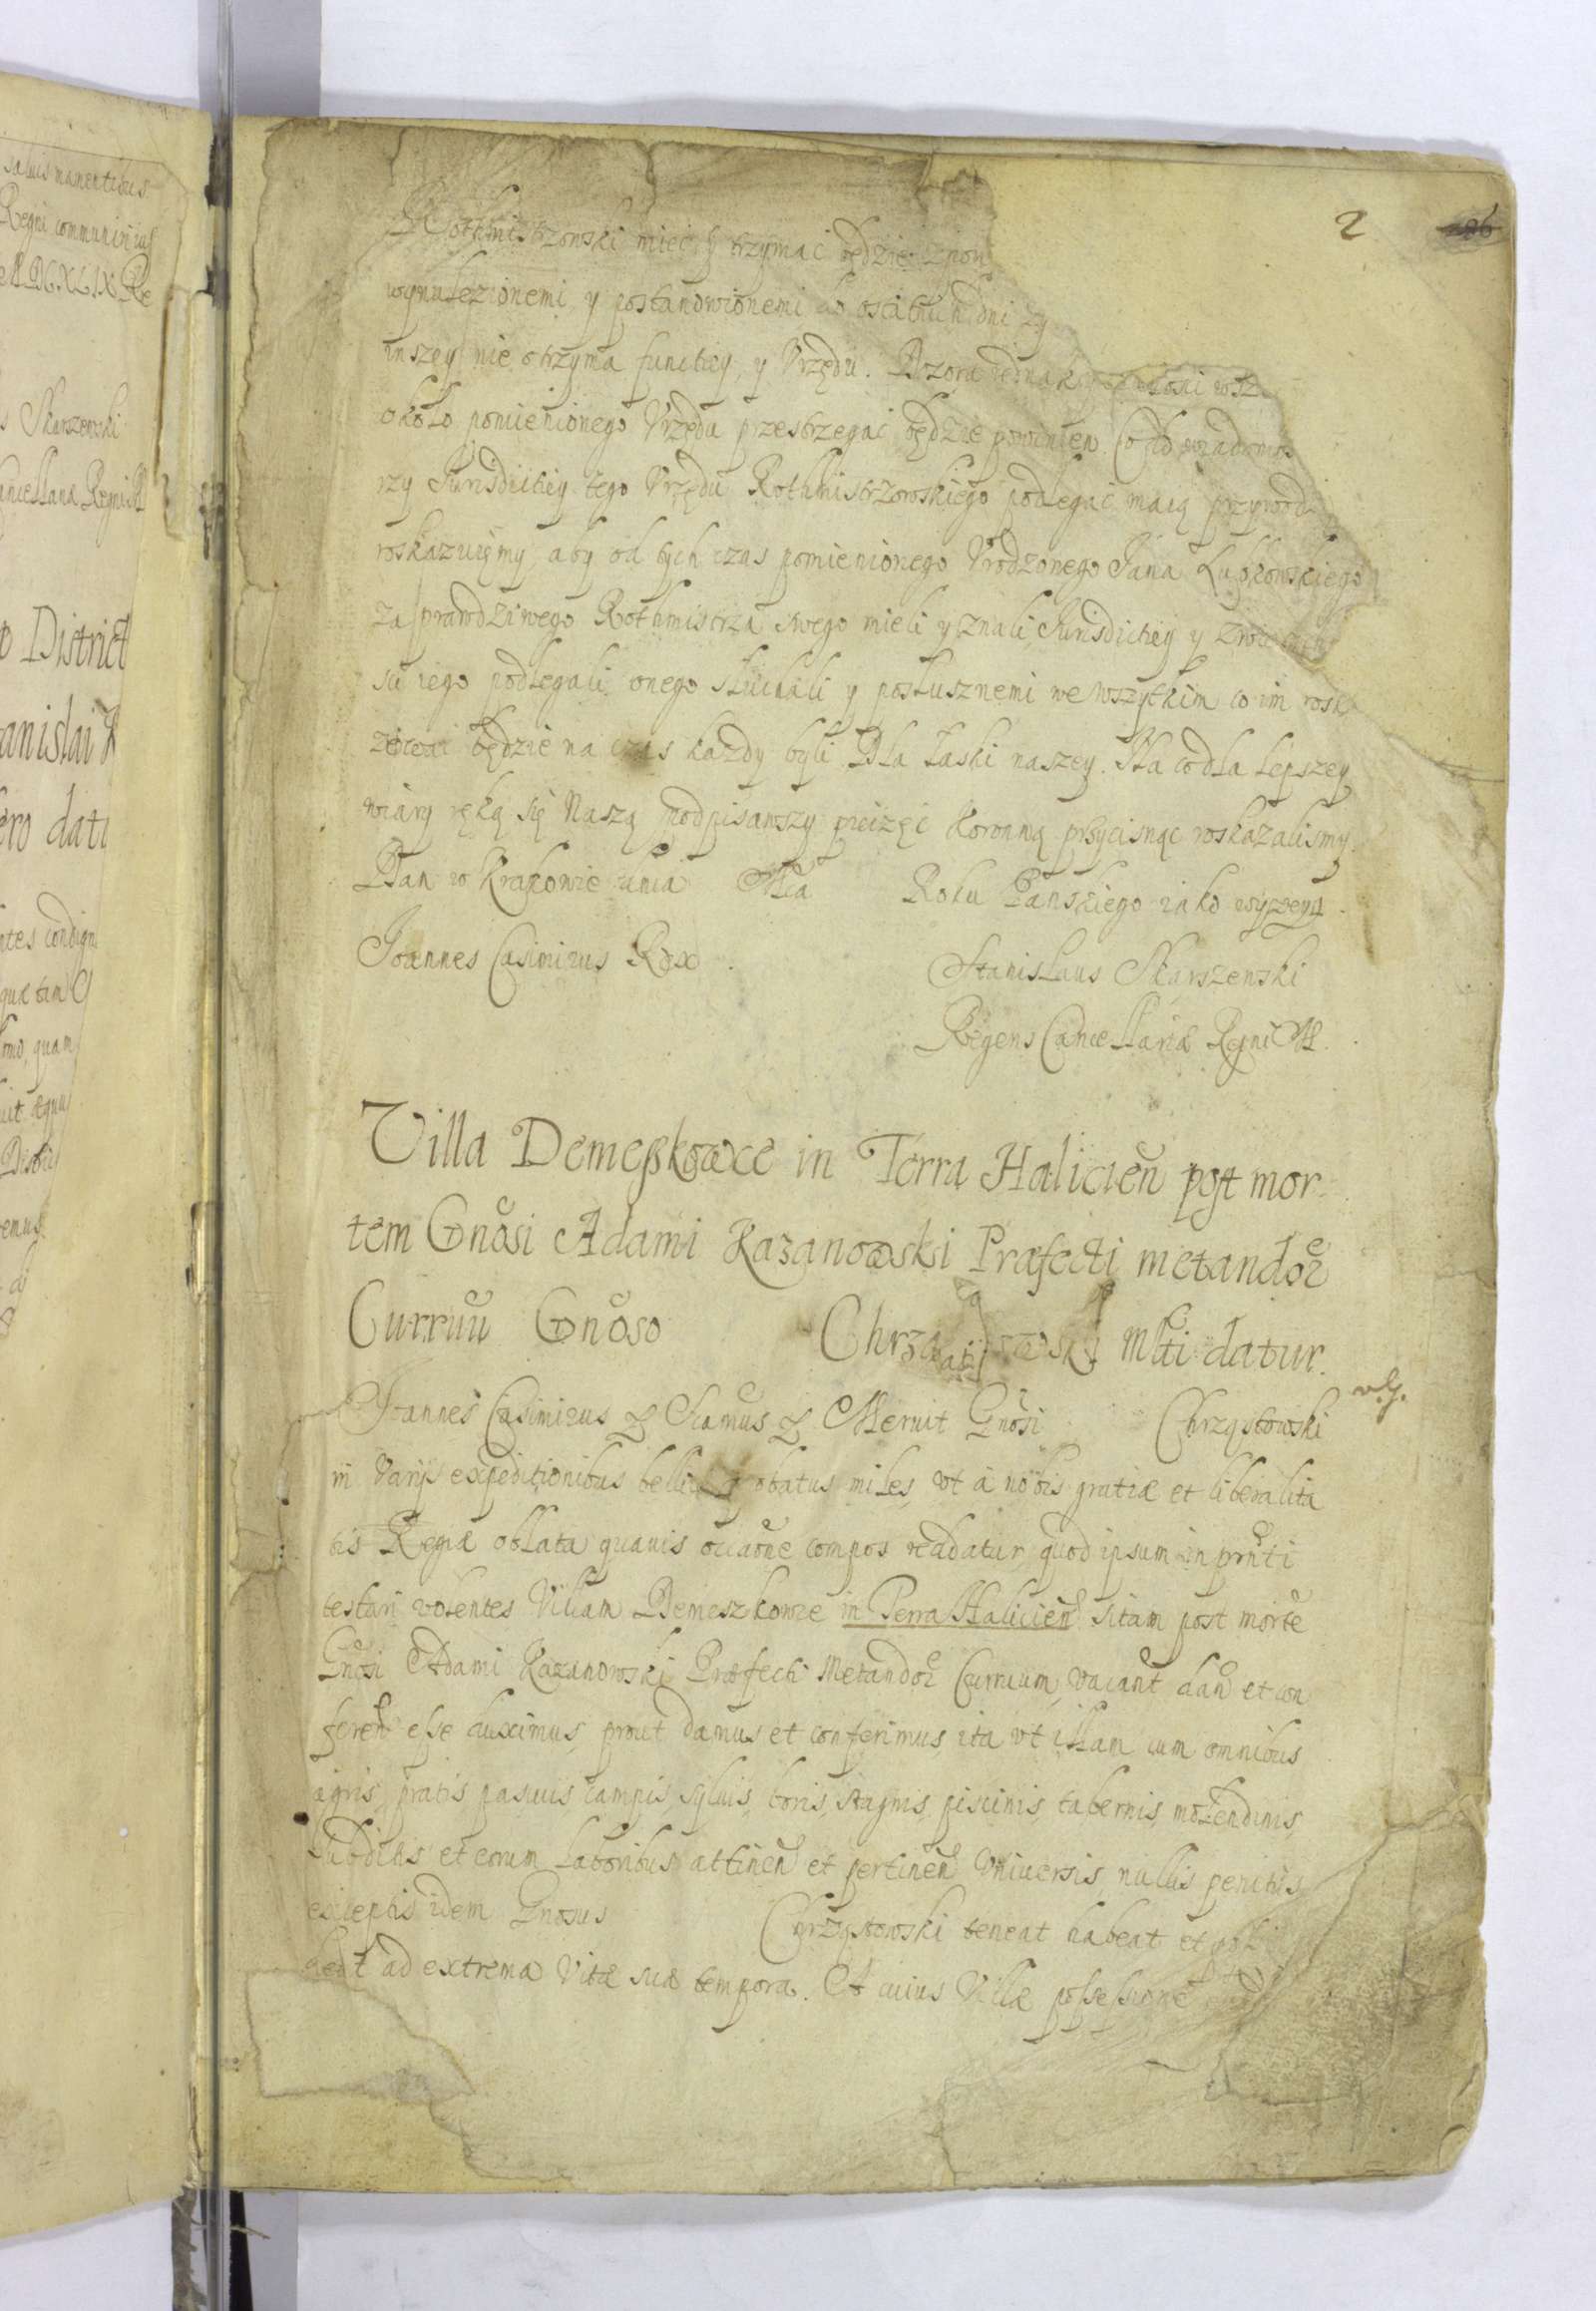 salvis manentibus
Regni communirius
s Skarszewski
Cancellariæ Regni M
o District
anislai
ero datu
ntes condign
quæ tam
quam
emus
2
Rothmistrzowski mieć y trzymać będzie zpow
wynalezionemi y postanowionemi do ostatnich dni ży
inszey nie otrzyma functiey, y Vrzędu. Dozoru iednak całości wsz
około pomienionego Vrzędu przestrzegać będzie powinien Co do wiadomoś
rzy Jurisdictiey tego Vrzędu Rothmistrzowskiego podlegać maią przywodz
roskazuięmy, aby od tych czas pomienionego Vrodzonego Jana Łubkowskiego
za prawdziwego Rothmistrza swego mieli y znali Jurisdictiey y zwierzchn
su iego podlegali onego słuchali y posłusznemi we wszytkim co im rosk
zować będzie na czas każdy byli Dla łaski naszey. Na co dla lepszey
wiary ręką się Naszą podpisawszy pieczęć Koronną przycisnąć roskazalismy.
Dan w Krakowie dnia Mca Roku Pańskiego iako wyzey.
Joannes Casimirus Rex. Stanislaus Skarszewski
Regens Cancellariæ Regni M.
Villa Demeßkowce in Terra Halicien post mor
tem Gnosi Adami Kazanowski Præfecti metandor
Curruu Gnoso Chrząstowski Mlti datur.
Joannes Casimirus Meruit Gnosi Chrząstowski
in Varijs expeditionibus bellicis probatus miles, vt à nobis gratiæ et liberalita
tis Regiæ oblata quauis occaone compos reddatur, quod ipsum in prnti
testari volentes Villam Demeszkowce in Terra Halicien sitam post morte
Gnosi Adami Kazanowski Præfecti Metandor Curruum, vacant dan et con
feren esse duximus, prout damus et conferimus, ita vt illam cum omnibus
agris, pratis, pascuis, campis, syluis, boris, stagnis, piscinis, tabernis, molendinis,
subditis et eorum laboribus attinen et pertinen Vniuersis nullis penitus
exceptis idem Gnosus Chrząstowski teneat habeat et possi
deat ad extrema Vitæ suæ tempora. In cuius Villæ possessione